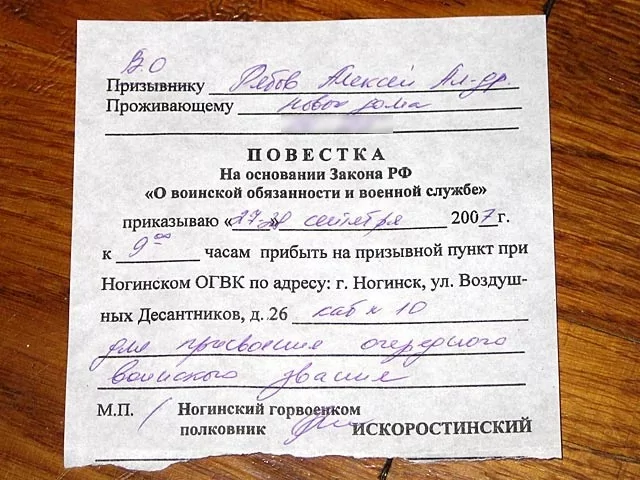 В.О
Призывнику Рябов Алексей Ал-др.
Проживающему новое дома
ПОВЕСТКА
На основании Закона РФ
«О воинской обязанности и военной службе»
приказываю «27-28» сентября 2007 г.
к 9⁰⁰ часам прибыть на призывной пункт при
Ногинском ОГВК по адресу: г. Ногинск, ул. Воздуш-
ных Десантников, д. 26 каб № 10
для присвоения очередного
воинского звания
М.П. Ногинский горвоенком
полковник ИСКОРОСТИНСКИЙ